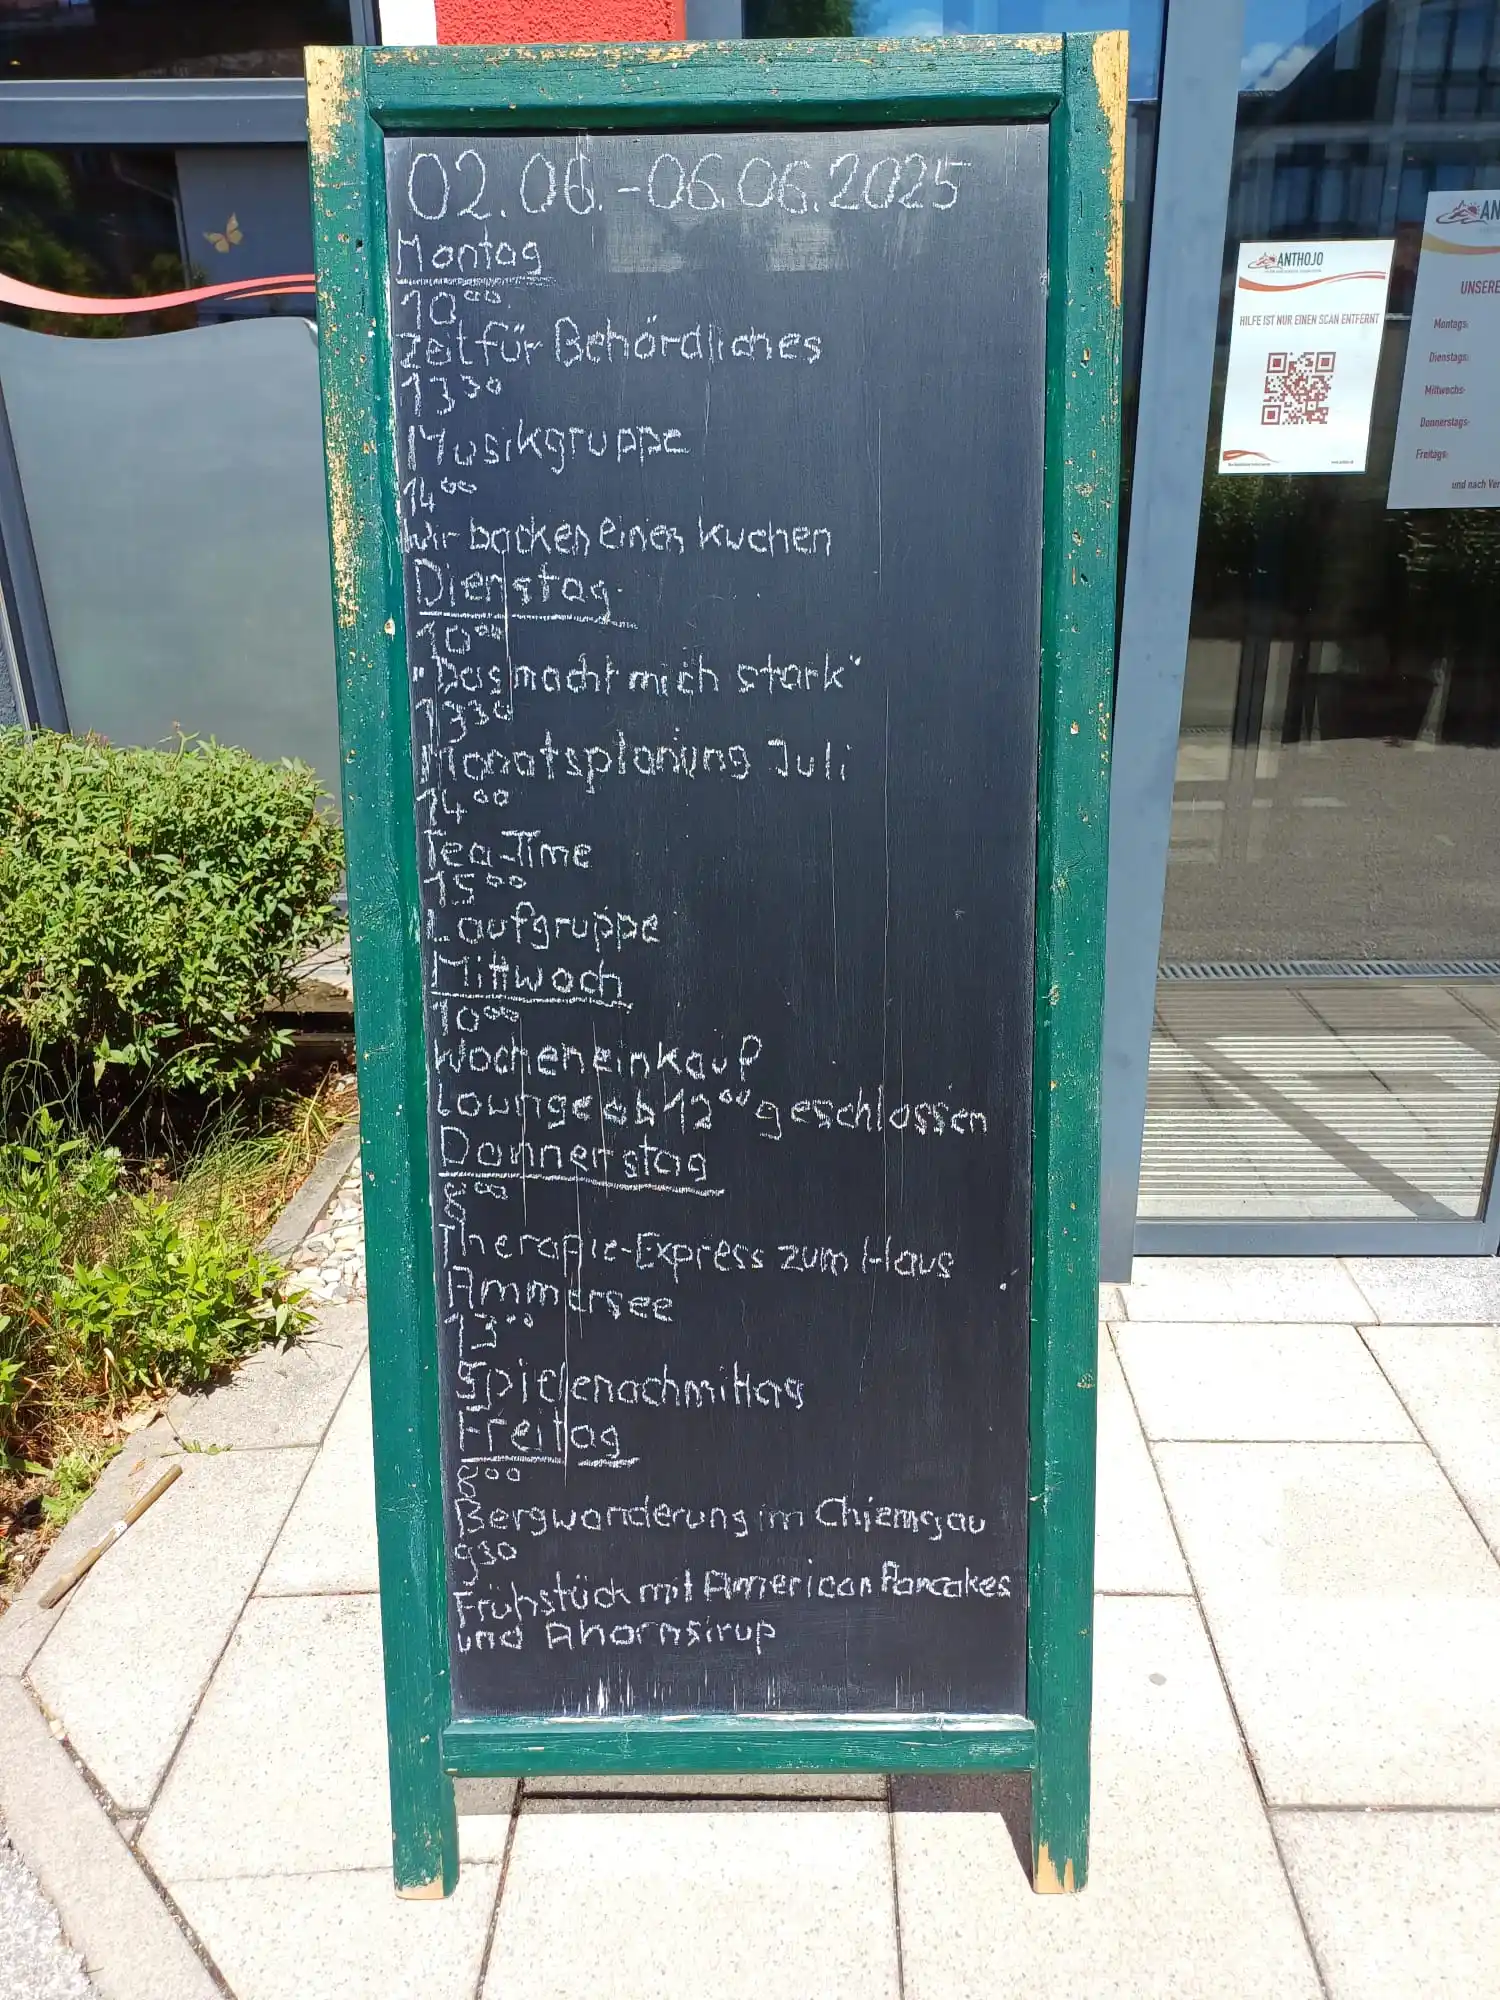 02.06.-06.06.2025
Montag
10⁰⁰
Zeit für Behördliches
13³⁰
Musikgruppe
14⁰⁰
Wir backen einen Kuchen
Dienstag
10⁰⁰
"Das macht mich stark"
13³⁰
Monatsplanung Juli
14⁰⁰
Tea-Time
15⁰⁰
Laufgruppe
Mittwoch
10⁰⁰
Wocheneinkauf
Lounge ab 12⁰⁰ geschlossen
Donnerstag
8⁰⁰
Therapie-Express zum Haus
Ammersee
13⁰⁰
Spielenachmittag
Freitag
8⁰⁰
Bergwanderung im Chiemgau
9³⁰
Frühstück mit American Pancakes
und Ahornsirup
ANTHOJO
HILFE IST NUR EINEN SCAN ENTFERNT
AN
UNSERE
Montags:
Dienstags:
Mittwochs:
Donnerstags:
Freitags:
und nach Ver